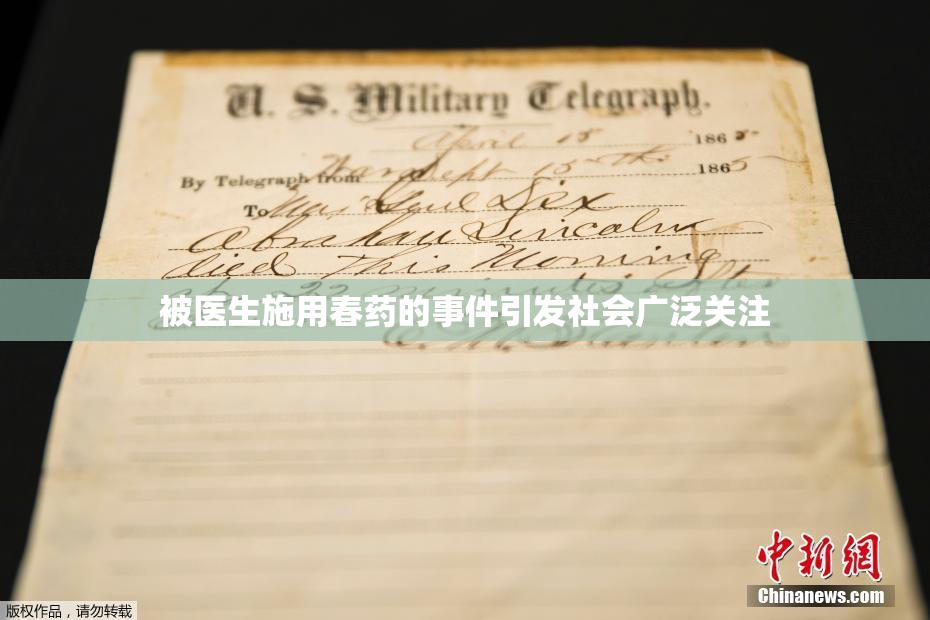 U. S. Military Telegraph.
April 15 1865
By Telegraph from War Dept 15th 1865
To Maj Genl Dix
Abraham Lincoln
died This Morning
at 22 minutes after
被医生施用春药的事件引发社会广泛关注
中新网
Chinanews.com
版权作品，请勿转载